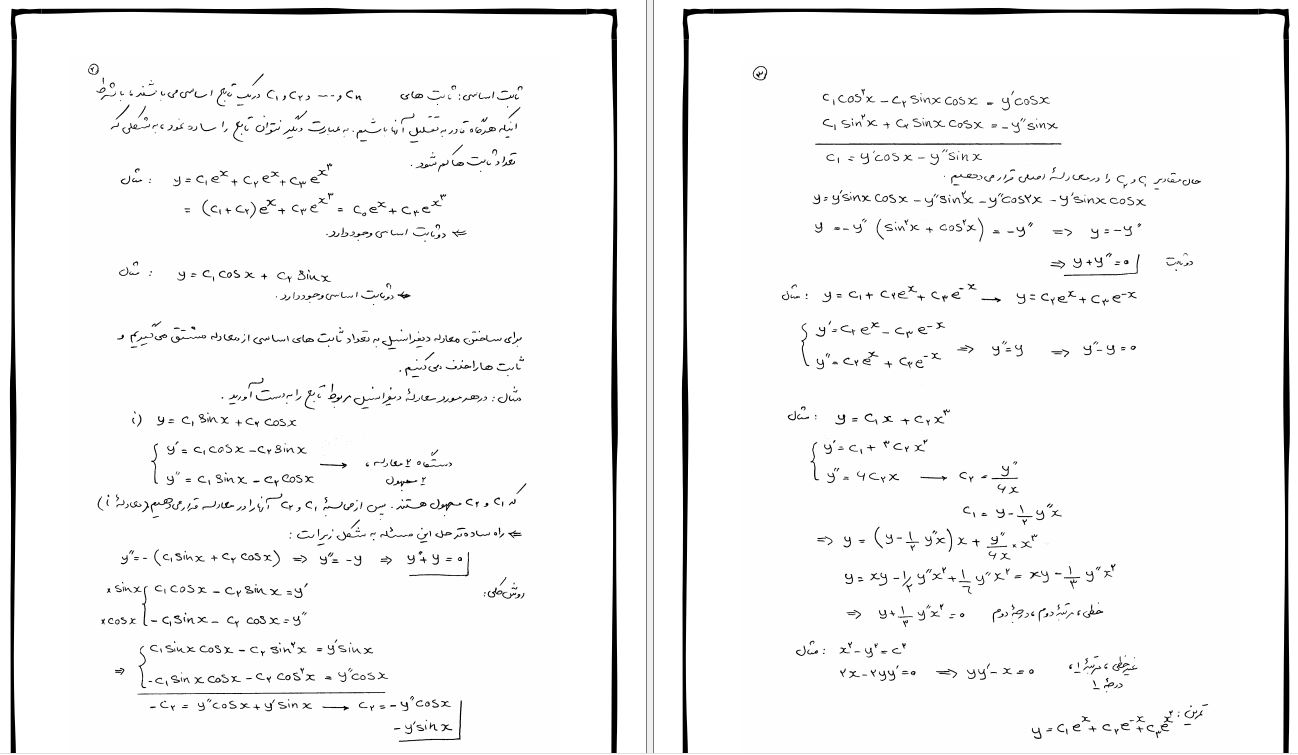 ②
ثابت اساسی: ثابت های c₁ و c₂ و ... و cₙ در یک تابع اساسی می باشند، با شرط
اینکه هرگاه قادر به تقلیل آنها نباشیم. به عبارت دیگر نتوان تابع را ساده نمود، به شکلی که
تعداد ثابت ها کم شود.
مثال: y = c₁eˣ + c₂eˣ + c₃e^x^۳
= (c₁+c₂)eˣ + c₃e^x^۳ = c₀eˣ + c₃e^x^۳
⇐ دو ثابت اساسی وجود دارد.
مثال: y = c₁ cos x + c₂ sin x
دو ثابت اساسی وجود دارد.
برای ساختن معادله دیفرانسیل به تعداد ثابت های اساسی از معادله مشتق می گیریم و
ثابت ها را حذف می کنیم.
مثال: در هر مورد معادلۀ دیفرانسیل مربوط تابع را به دست آورید.
i) y = c₁ sin x + c₂ cos x
y' = c₁ cos x - c₂ sin x
→ دستگاه ۲ معادله،
y'' = c₁ sin x - c₂ cos x
۲ مجهول
که c₁ و c₂ مجهول هستند. پس از محاسبۀ c₁ و c₂ آنها را در معادله قرار می دهیم (معادلۀ i)
⇐ راه ساده تر حل این مسئله به شکل زیر است:
y'' = -(c₁ sin x + c₂ cos x) ⇒ y'' = -y ⇒ y'' + y = ۰
روش کلی:
× sin x { c₁ cos x - c₂ sin x = y'
× cos x { -c₁ sin x - c₂ cos x = y''
⇒ { c₁ sin x cos x - c₂ sin²x = y' sin x
-c₁ sin x cos x - c₂ cos²x = y'' cos x
-c₂ = y'' cos x + y' sin x → c₂ = -y'' cos x
- y' sin x
③
c₁ cos²x - c₂ sin x cos x = y' cos x
c₁ sin²x + c₂ sin x cos x = -y'' sin x
c₁ = y' cos x - y'' sin x
حال مقادیر c₁ و c₂ را در معادلۀ اصلی قرار می دهیم.
y = y' sin x cos x - y'' sin²x - y'' cos²x - y' sin x cos x
y = -y'' (sin²x + cos²x) = -y'' ⇒ y = -y''
⇒ y + y'' = ۰ دو ثابت
مثال: y = c₁ + c₂eˣ + c₃e⁻ˣ → y = c₂eˣ + c₃e⁻ˣ
y' = c₂eˣ - c₃e⁻ˣ
⇒ y'' = y ⇒ y'' - y = ۰
y'' = c₂eˣ + c₂e⁻ˣ
مثال: y = c₁x + c₂x^۳
y' = c₁ + ۳c₂x^۲
y'' = ۶c₂x → c₂ = y''/۶x
c₁ = y - ۱/۲ y''x
⇒ y = (y - ۱/۲ y''x) x + y''/۶x × x^۳
y = xy - ۱/۲ y''x^۲ + ۱/۶ y''x^۲ = xy - ۱/۳ y''x^۲
⇒ y + ۱/۳ y''x^۲ = ۰ خطی، مرتبۀ دوم، درجۀ دوم
مثال: x^۲ - y^۲ = c^۲
۲x - ۲yy' = ۰ ⇒ yy' - x = ۰ غیرخطی، مرتبۀ ۱،
درجۀ ۱
تمرین: y = c₁eˣ + c₂e⁻ˣ + c₃e^x^۲